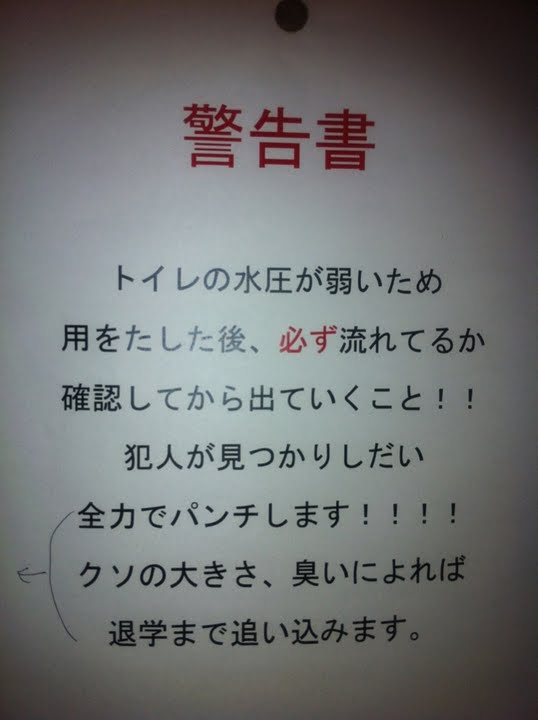 警告書
トイレの水圧が弱いため
用をたした後、必ず流れてるか
確認してから出ていくこと！！
犯人が見つかりしだい
全力でパンチします！！！！
クソの大きさ、臭いによれば
退学まで追い込みます。